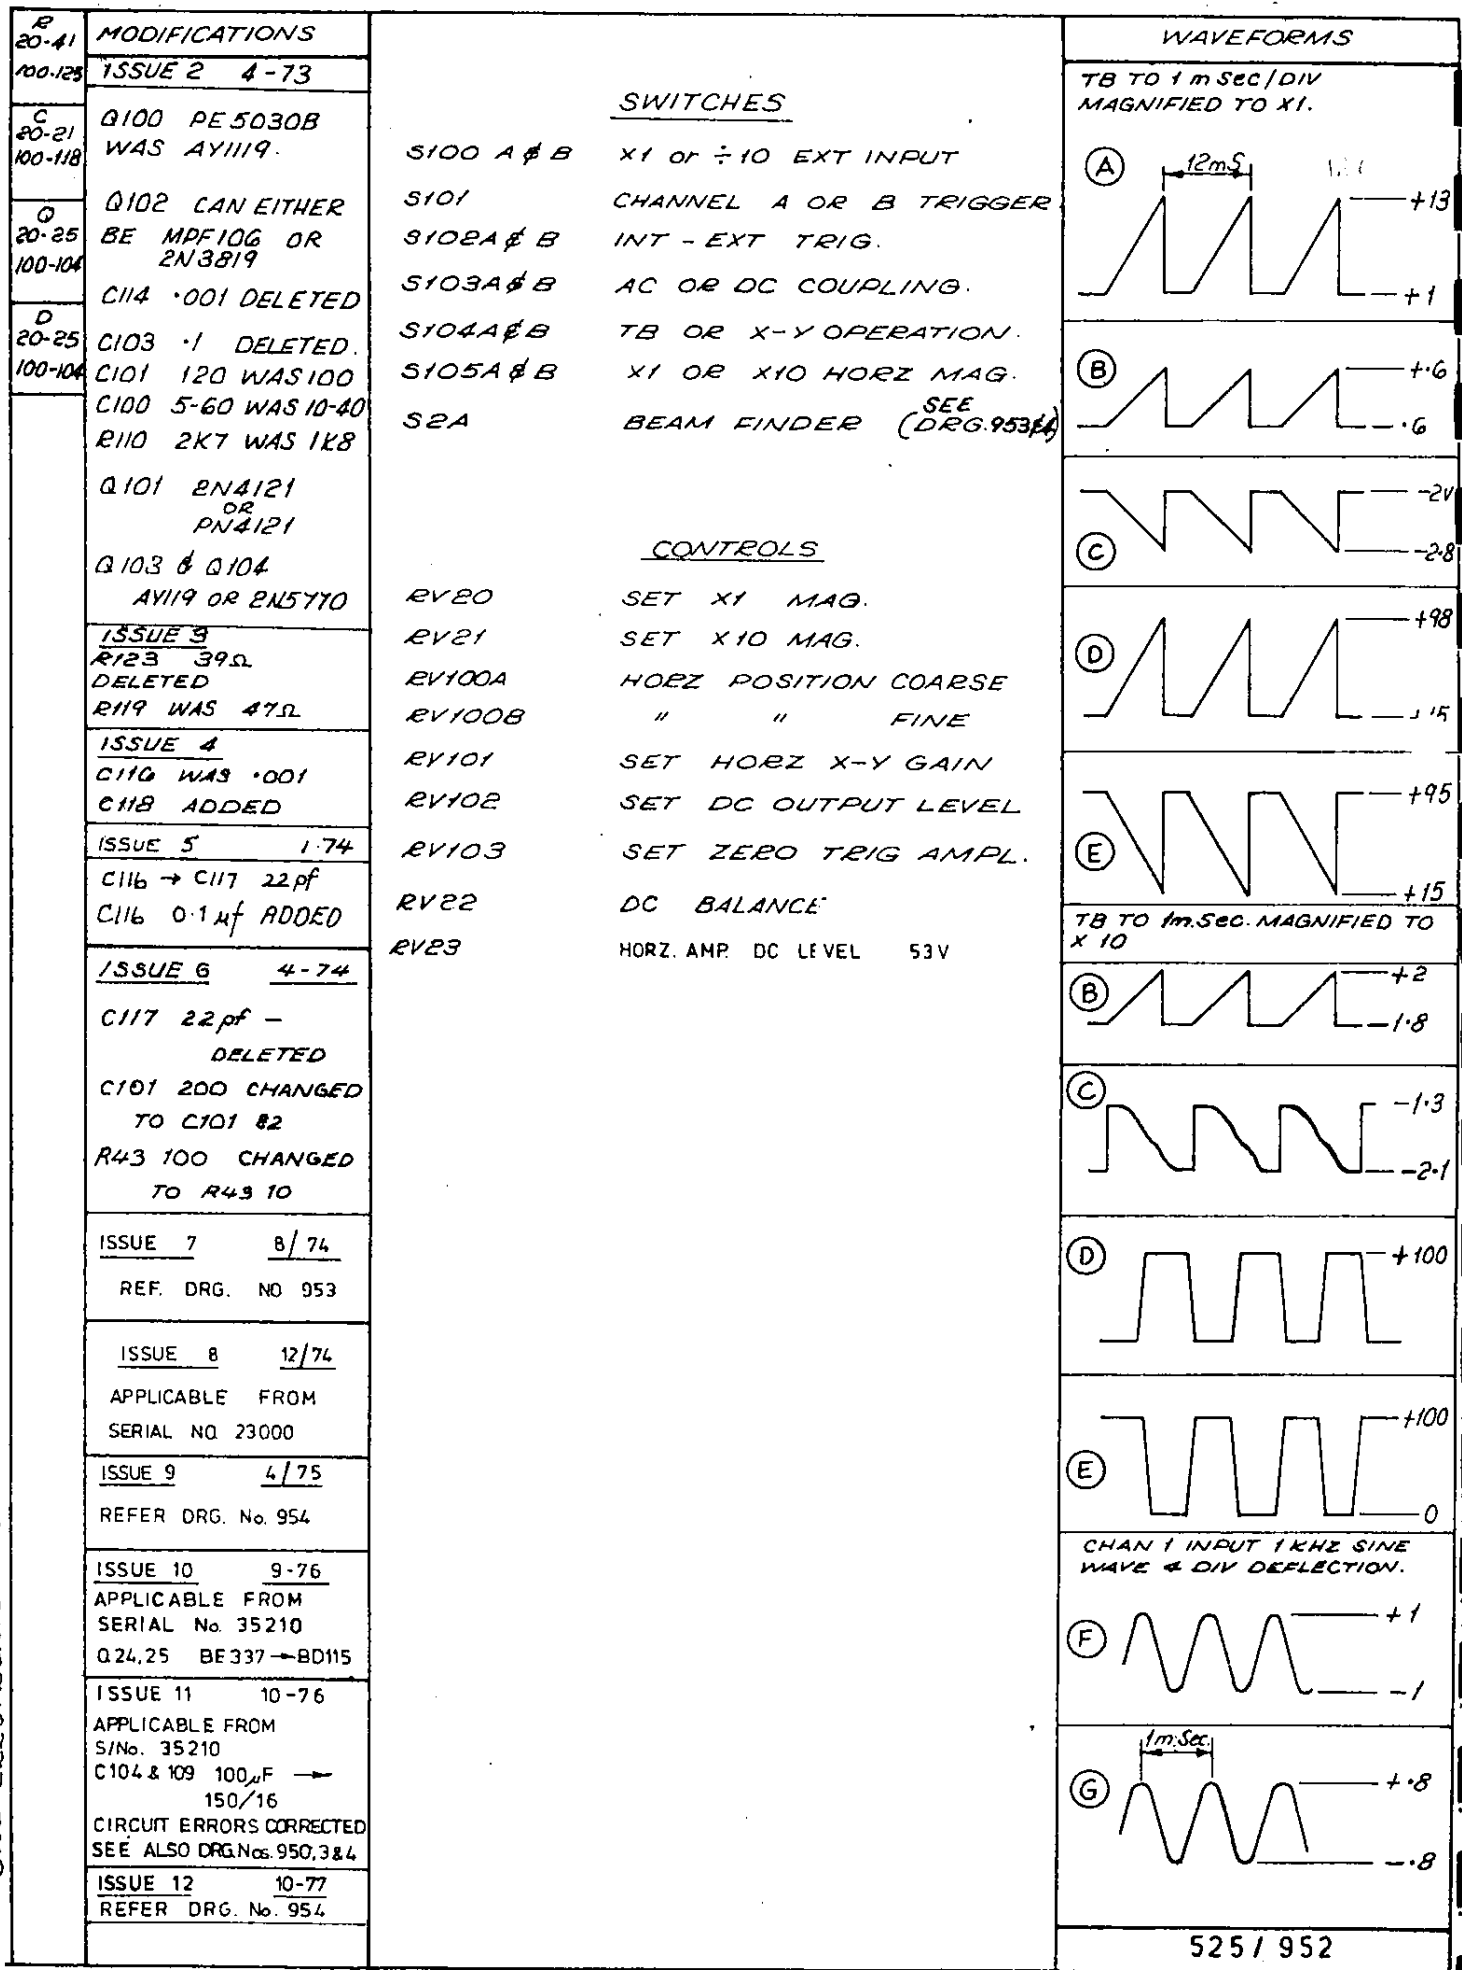 R
20-41
100-125
C
20-21
100-118
Q
20-25
100-104
D
20-25
100-104
MODIFICATIONS
ISSUE 2 4-73
Q100 PE5030B
WAS AY1119.
Q102 CAN EITHER
BE MPF106 OR
2N3819
C114 ·001 DELETED
C103 ·1 DELETED.
C101 120 WAS 100
C100 5-60 WAS 10-40
R110 2K7 WAS 1K8
Q101 2N4121
OR
PN4121
Q103 & Q104
AY119 OR 2N5770
ISSUE 3
R123 39Ω
DELETED
R119 WAS 47Ω
ISSUE 4
C116 WAS ·001
C118 ADDED
ISSUE 5 1·74
C116 → C117 22pf
C116 0·1µf ADDED
ISSUE 6 4-74
C117 22pf —
DELETED
C101 200 CHANGED
TO C101 82
R43 100 CHANGED
TO R43 10
ISSUE 7 8/74
REF. DRG. NO 953
ISSUE 8 12/74
APPLICABLE FROM
SERIAL NO. 23000
ISSUE 9 4/75
REFER DRG. No. 954
ISSUE 10 9-76
APPLICABLE FROM
SERIAL No. 35210
Q24,25 BE337→BD115
ISSUE 11 10-76
APPLICABLE FROM
S/No. 35210
C104 & 109 100µF →
150/16
CIRCUIT ERRORS CORRECTED
SEE ALSO DRG.Nos. 950,3&4
ISSUE 12 10-77
REFER DRG. No. 954
SWITCHES
S100 A & B X1 or ÷10 EXT INPUT
S101 CHANNEL A OR B TRIGGER
S102A & B INT - EXT TRIG.
S103A & B AC OR DC COUPLING.
S104A & B TB OR X-Y OPERATION.
S105A & B X1 OR X10 HORZ MAG.
S2A BEAM FINDER (SEE DRG.953)
CONTROLS
RV20 SET X1 MAG.
RV21 SET X10 MAG.
RV100A HORZ POSITION COARSE
RV100B " " FINE
RV101 SET HORZ X-Y GAIN
RV102 SET DC OUTPUT LEVEL
RV103 SET ZERO TRIG AMPL.
RV22 DC BALANCE
RV23 HORZ. AMP. DC LEVEL 53V
WAVEFORMS
TB TO 1 mSec/DIV
MAGNIFIED TO X1.
A 12mS
+13
+1
B +·6
-·6
-2V
C -2·8
+98
D
+95
E
+15
TB TO 1m.Sec. MAGNIFIED TO
X 10
B +2
-1·8
C -1·3
-2·1
D +100
+100
E
0
CHAN 1 INPUT 1 KHZ SINE
WAVE 4 DIV DEFLECTION.
+1
F
-1
1m.Sec.
G +·8
-·8
525/952